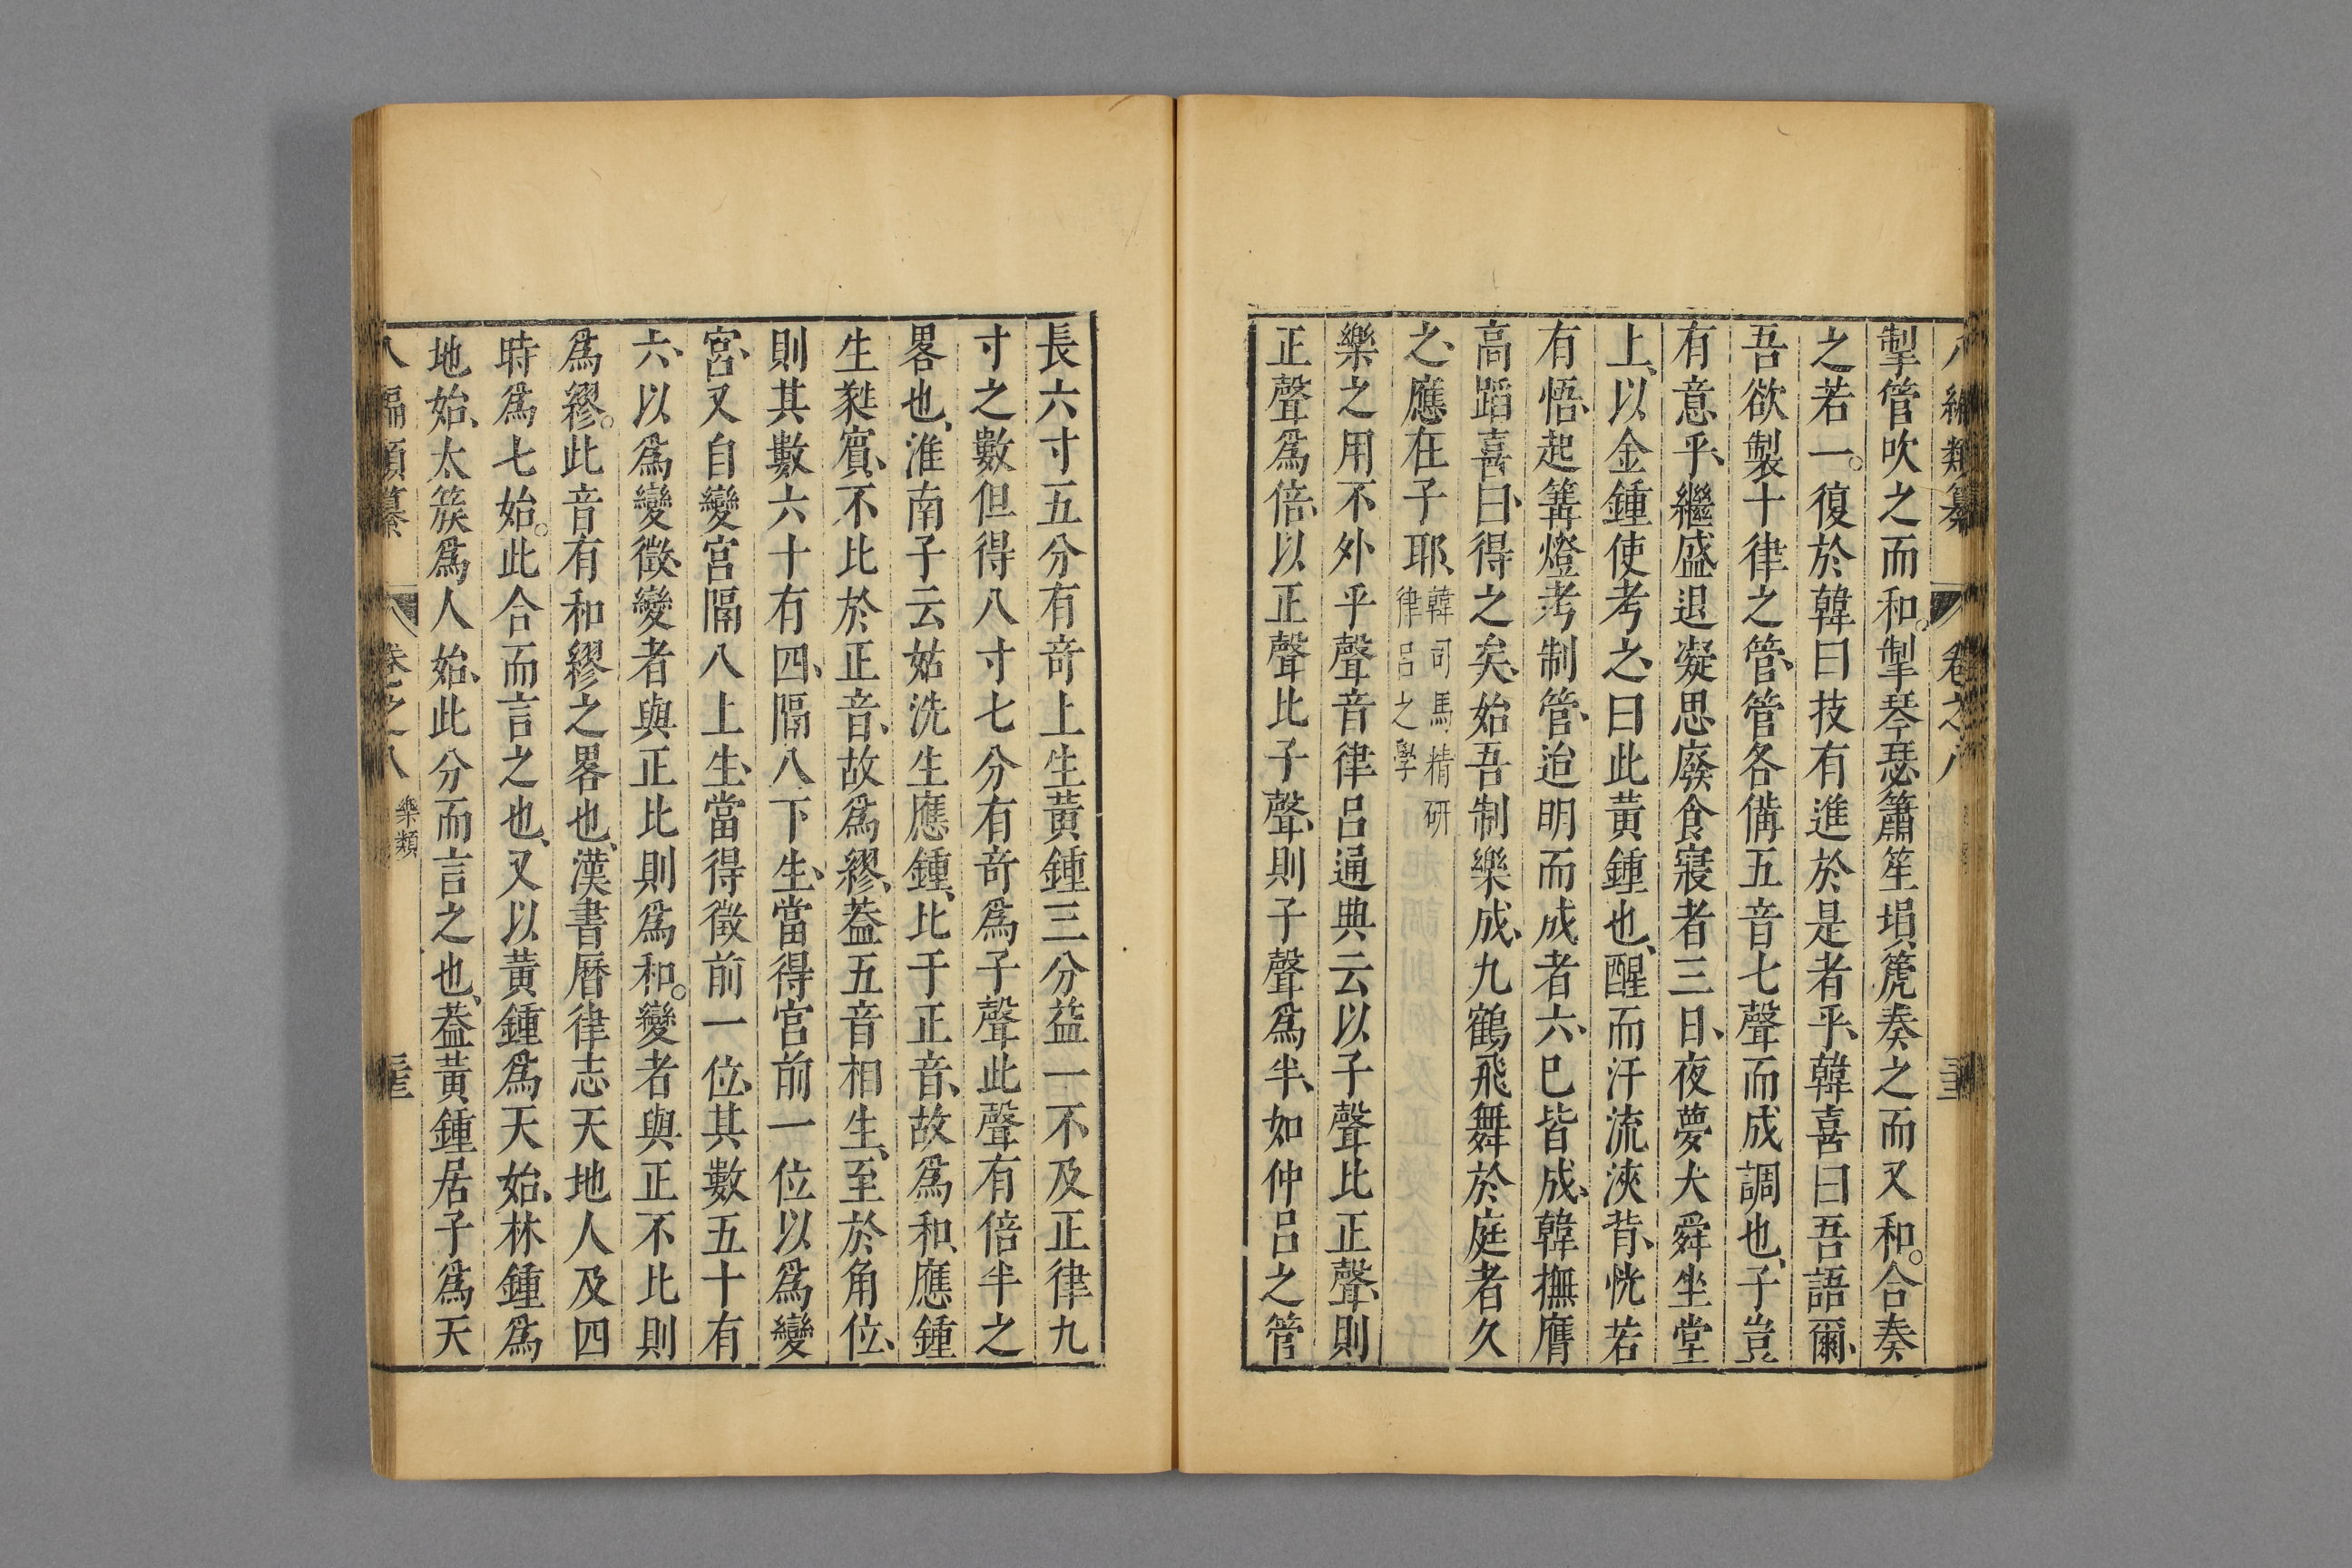 八編類纂 卷之八
掣管吹之而和。掣琴瑟簫笙塤篪奏之而又和。合奏
之若一。復於韓曰技有進於是者乎、韓喜曰吾語爾、
吾欲製十律之管、管各備五音七聲而成調也、子豈
有意乎、繼盛退凝思廢食寢者三日、夜夢大舜坐堂
上、以金鍾使考之、曰此黃鍾也、醒而汗流浹背、恍若
有悟、起篝燈考制管、迨明而成者六、巳皆成、韓撫膺
高蹈喜曰、得之矣、始吾制樂成、九鶴飛舞於庭者久
之、應在子耶、韓司馬精研
律呂之學
樂之用不外乎聲音律呂通典云以子聲比正聲、則
正聲爲倍、以正聲比子聲、則子聲爲半、如仲呂之管
長六寸五分有奇上生黃鍾三分益一不及正律九
寸之數但得八寸七分有奇爲子聲此聲有倍半之
畧也、淮南子云姑洗生應鍾、比于正音、故爲和、應鍾
生蕤賓、不比於正音、故爲繆、葢五音相生、至於角位、
則其數六十有四、隔八下生、當得宮前一位以爲變
宮、又自變宮隔八上生、當得徵前一位、其數五十有
六、以爲變徵、變者與正比則爲和。變者與正不比則
爲繆。此音有和繆之畧也、漢書曆律志天地人及四
時爲七始。此合而言之也、又以黃鍾爲天始、林鍾爲
地始、太簇爲人始、此分而言之也、葢黃鍾居子爲天
八編類纂 卷之八 樂類